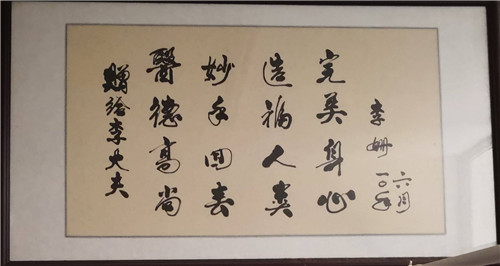 贈给李大夫
醫德高尚
妙手回春
造福人类
完美身心
李姗
一〇年
六月